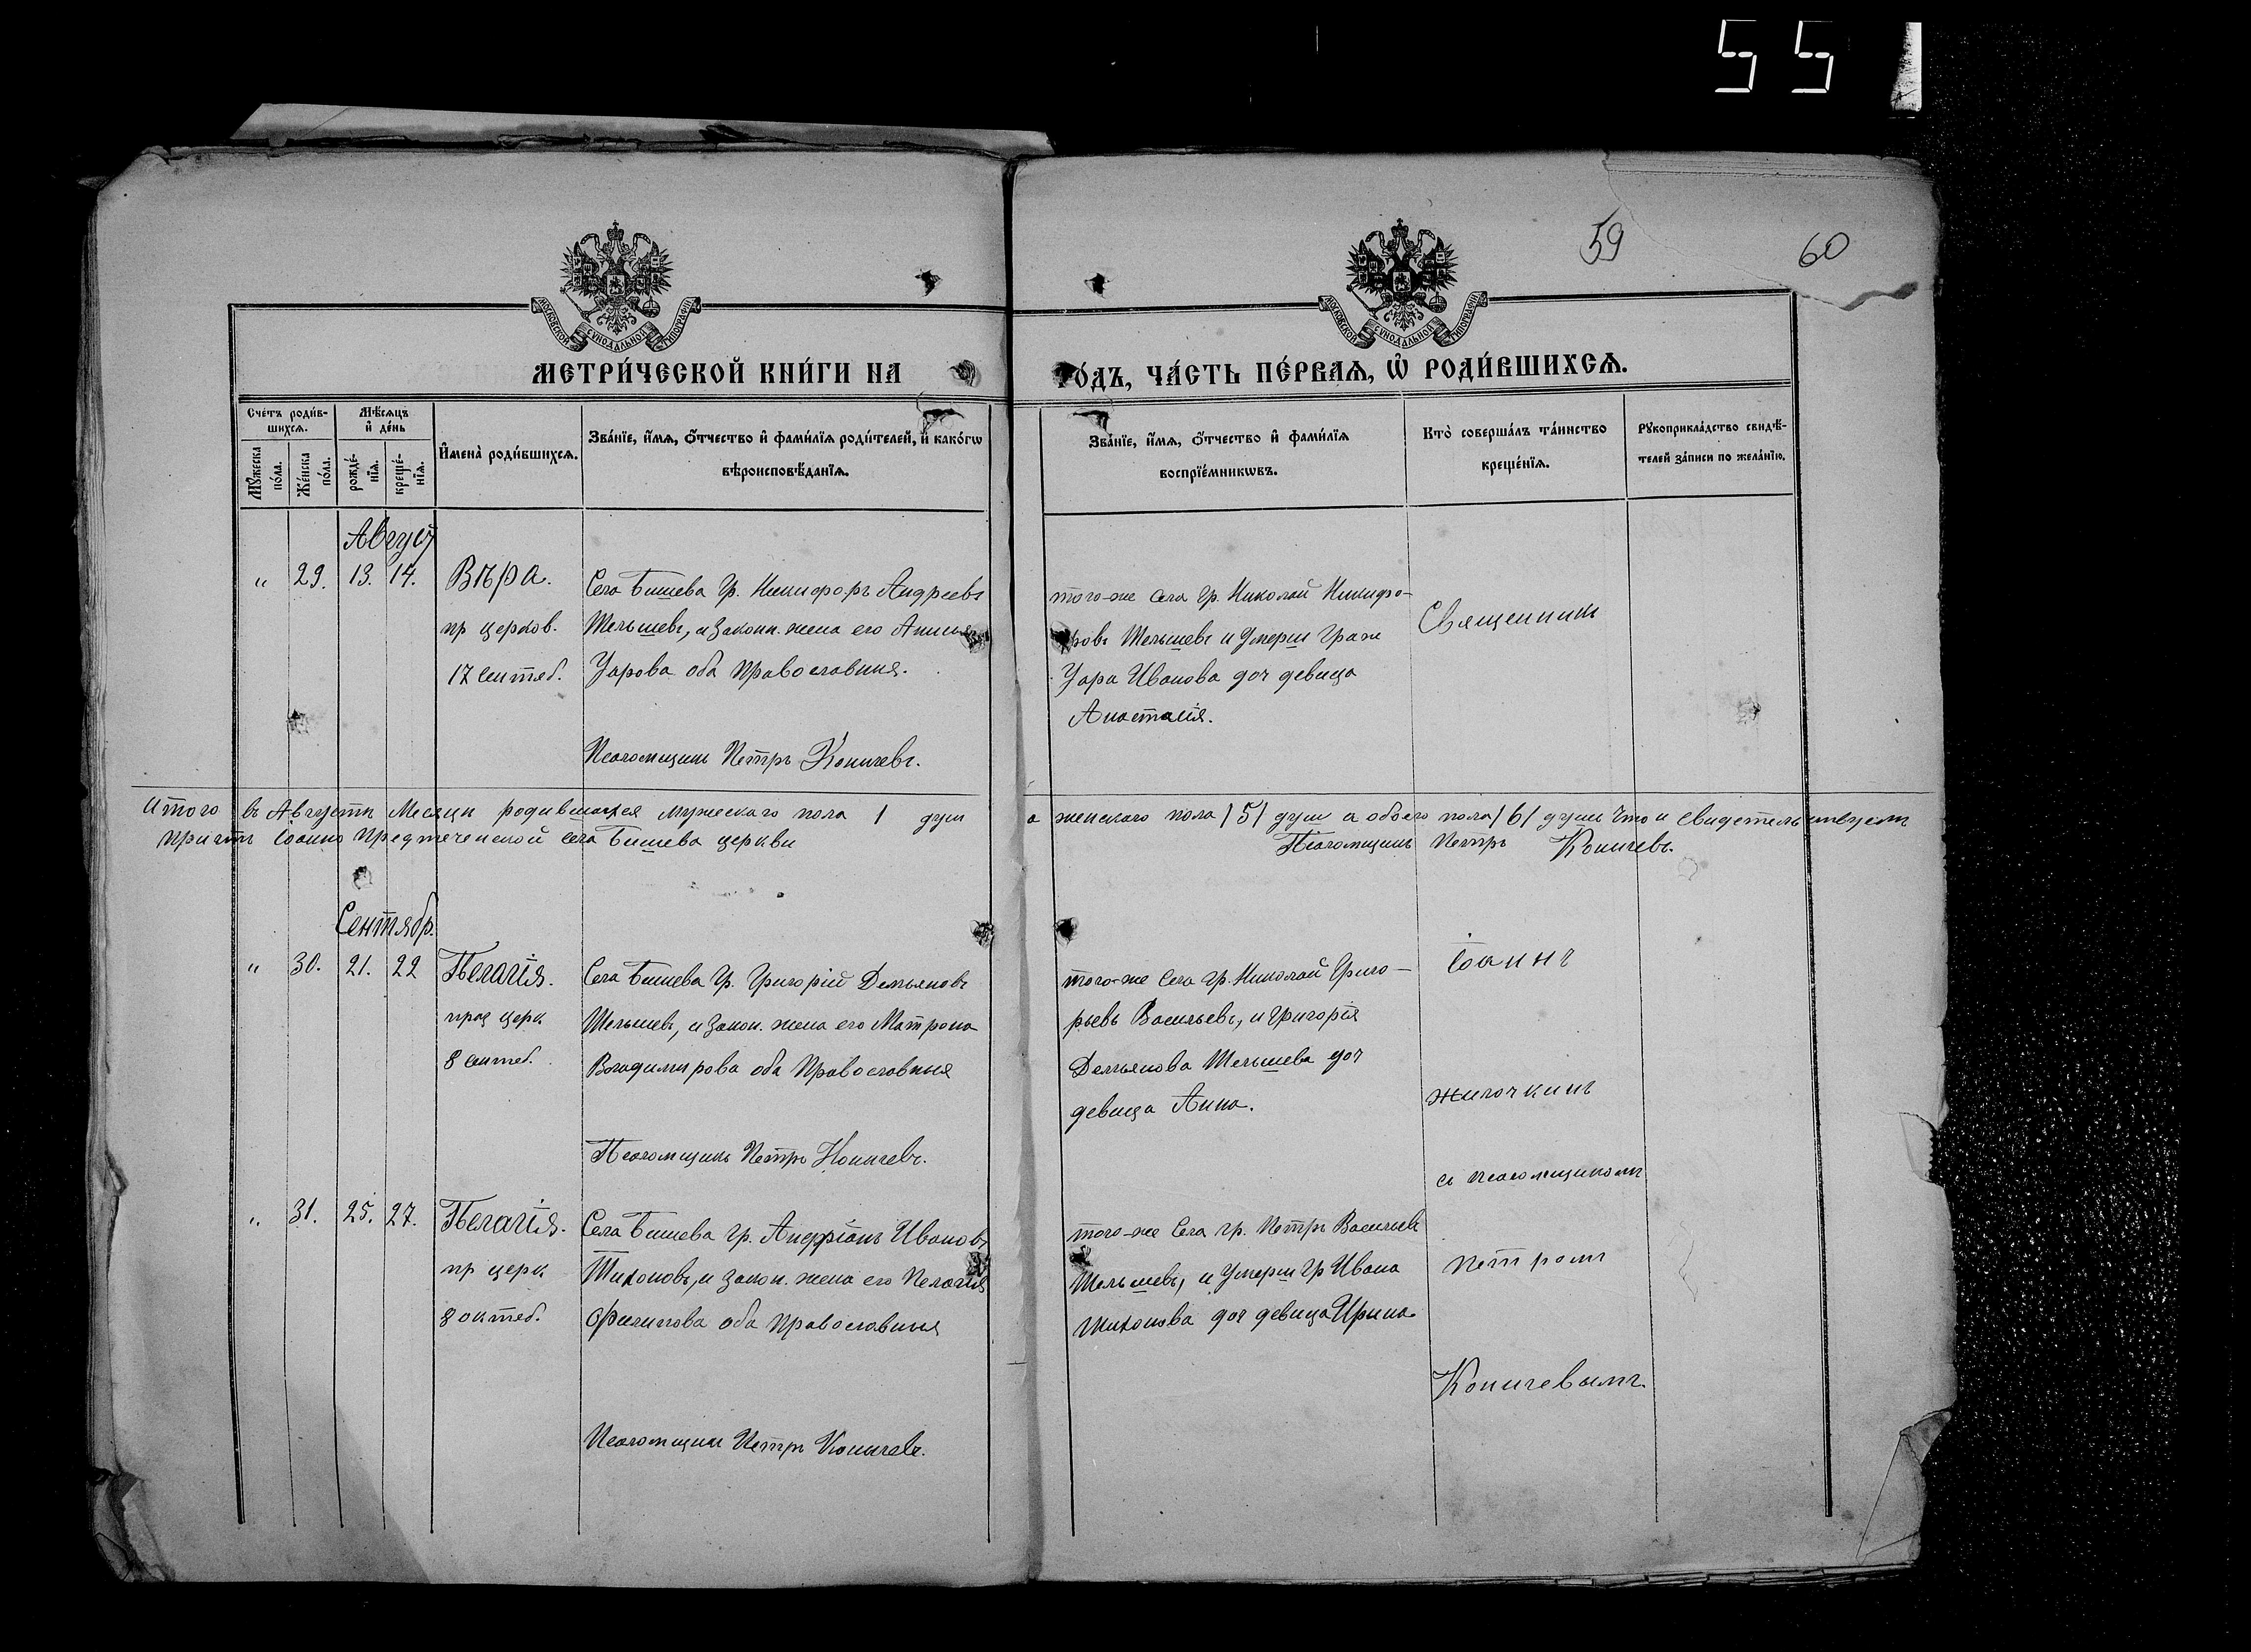 55
59
60
МОСКОВСКОЙ СУНОДАЛЬНОЙ ТИПОГРАФІИ
МОСКОВСКОЙ СУНОДАЛЬНОЙ ТИПОГРАФІИ
МЕТРИ́ЧЕСКОЙ КНИ́ГИ НА ГО́ДЪ, ЧА́СТЬ ПЕ́РВАѦ, Ѡ҆ РОДИ́ВШИХСѦ.
Сче́тъ роди́в-
шихсѧ.
Мꙋ́жеска по́ла.
Же́нска по́ла.
Мѣ́сѧцъ
и҆ де́нь
рожде́-
нїѧ.
креще́-
нїѧ.
И҆мена̀ роди́вшихсѧ.
Зва́нїе, и҆́мѧ, ѻ҆́тчество и҆ фами́лїѧ роди́телей, и҆ како́гѡ
вѣроисповѣ́данїѧ.
Зва́нїе, и҆́мѧ, ѻ҆́тчество и҆ фами́лїѧ
воспрїе́мникѡвъ.
Кто̀ соверша́лъ та́инство
креще́нїѧ.
Рꙋкоприкла́дство свидѣ́-
телей за́писи по жела́нїю.
Август
" 29. 13. 14. Вѣра.
пр церков.
17 Сентяб.
Села Бишева Гр. Никифоръ Андреевъ
Шельшевъ, и Законн. жена его Анисья
Уарова оба Православныя.
Псаломщикъ Петръ Коничевъ.
того-же Села Гр. Николай Никифо-
ровъ Шельшевъ и Умерш Граж
Уара Иванова доч девица
Анастасія.
Священникъ
Итого въ Августѣ Месяцѣ родившихся мужескаго пола 1 душ а женскаго пола /5/ душ а обоего пола /6/ душъ Что и Свидетельствуетъ
Причтъ Іоанно Предтеченской Села Бишева церкви
Псаломщикъ Петръ Коничевъ.
Сентябр.
" 30. 21. 22 Пелагія.
праз церк
8 Сентеб.
Села Бишева Гр. Григорій Демьяновъ
Шельшевъ, и Закон. жена его Матрона
Владимирова оба Православныя
Псаломщикъ Петръ Коничевъ.
того-же Села Гр. Николай Григо-
рьевъ Васильевъ, и Григорія
Демьянова Шельшева доч
девица Анна.
Іоаннъ
Жилочкинъ
съ псаломщикомъ
" 31. 25. 27. Пелагія.
пр церк
8 октеб.
Села Бишева Гр. Андріанъ Ивановъ
Тихоновъ, и Закон. жена его Пелагія
Филипова оба Православныя
Псаломщикъ Петръ Коничевъ.
того-же Села гр. Петръ Васильевъ
Шельшевъ, и Умерш Гр Ивана
Тихонова доч девица Ирина
Петромъ
Коничевымъ.